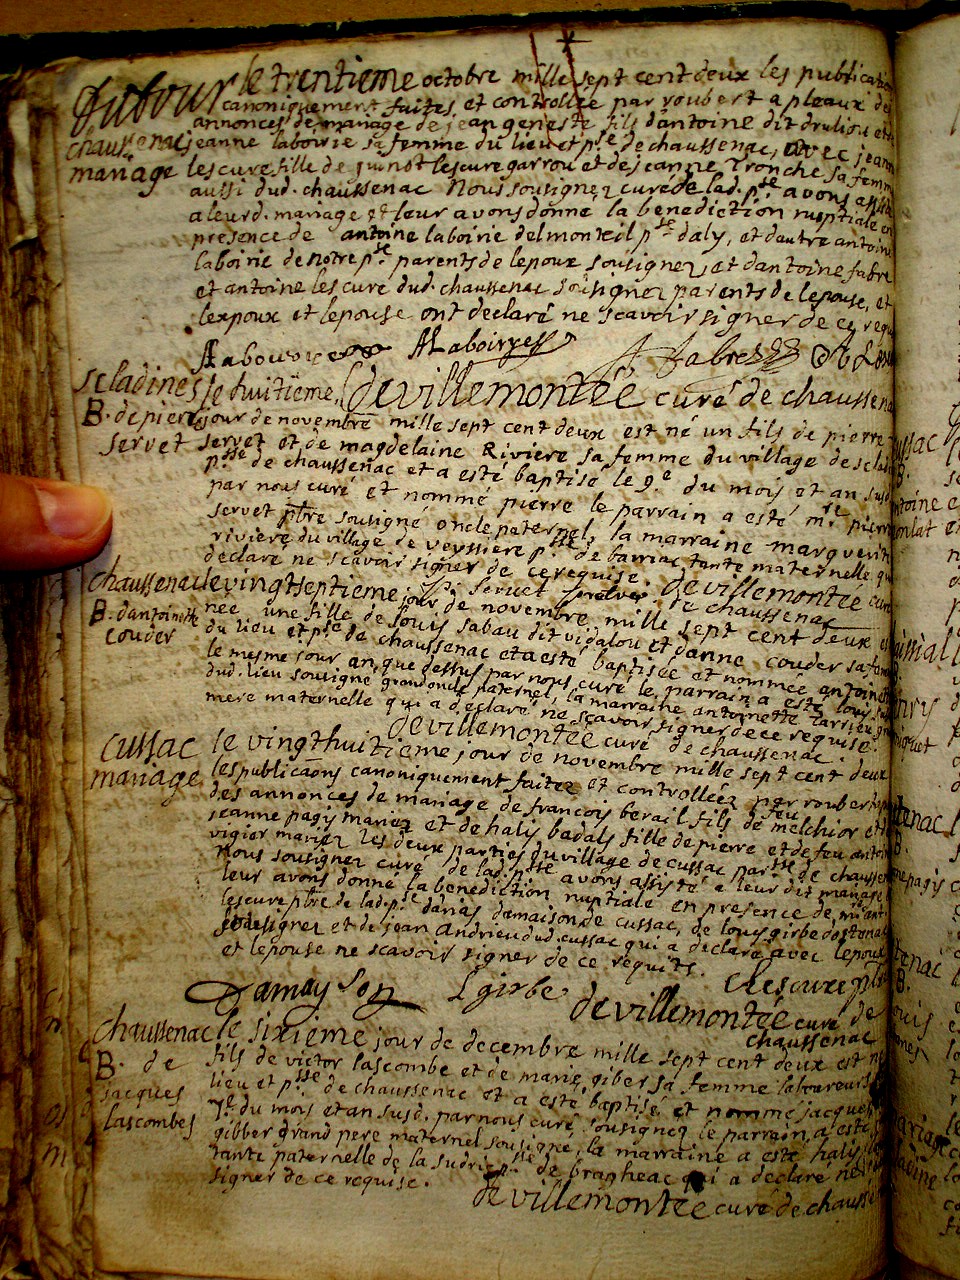 Dubour le trentieme octobre mille sept cent deux les publicatio
canoniquement faites et controllée par roubert a pleaux de
annonces de mariage de jean geneste fils dantoine dit druliou et de
chaussenac jeanne laboirie sa femme du lieu et psse de chaussenac, avec jeann
mariage lescure fille de lescure garrou et de jeanne tronche sa femm
aussi dud. chaussenac Nous sousignez curé de lad. psse avons assisté
a leur d. mariage et leur avons donné la benediction nuptiale en
presence de antoine laboirie delmonteil psse daly, et dautre antoine
laboirie de notre psse parents de lepoux sousignez, et dantoine fabre
et antoine lescure dud. chaussenac sousignez parents de lepouse, et
lexpoux et lepouse ont declaré ne scavoir signer de ce requ
ALaboirye Fabre
de villemontée curé de chaussena
scladines le huitieme
B. de pierre jour de novembre mille sept cent deux est né un fils de pierre
servet servet et de magdelaine Riviere sa femme du village de sclad
psse de chaussenac et a esté baptisé le 9e du mois et an susd
par nous curé et nommé pierre le parrain a esté mre pierre
servet pbre sousigné oncle paternel, la marraine marguerite
riviere du village de veyssiere psse de barriac tante maternelle qui
declaré ne scavoir signer de ce requise. servet prebre de villemontée curé
de chaussenac
chaussenac le vingtseptieme jour de novembre mille sept cent deux est
B. dantoinette née une fille de louis sabau dit vidalou et danne couder sa fem
couder du lieu et psse de chaussenac et a esté baptisée et nommée antoinet
le mesme jour an que dessus par nous curé le parrain a esté louis
dud. lieu sousigné grand oncle paternel, la marraine antoinette tarrieu
mere maternelle qui a declaré ne scavoir signer de ce requise.
de villemontée curé de chaussenac.
cussac le vingthuitieme jour de novembre mille sept cent deux
mariage les publicaons canoniquement faites et controlleez par roubert
des annonces de mariage de francois berail fils de feu melchior et de
jeanne pagis mariez et de halis badals fille de pierre et de feu antoi
vigier mariez les deux parties du village de cussac parsse de chaussen
Nous sousignez curé de lad. psse avons assisté a leur dit mariage
leur avons donné la benediction nuptiale en presence de mre ant
lescure pbre de lad. psse darias damaison de cussac, de louys girbe dostenac
sousignez et de jean Andrieu dud. cussac qui a declaré avec lepoux
et lepouse ne scavoir signer de ce requits.
Damayson Lgirbe Lescure pbre
de villemontée curé de
chaussenac
chaussenac le sixieme jour de decembre mille sept cent deux est né
B. de fils de victor lascombe et de marie giber sa femme laboureurs
jacques lieu et psse de chaussenac et a esté baptisé et nommé jacques
lascombes 7e du mois et an susd. par nous curé sousignez le parrain a esté
gibber grand pere maternel sousigné, la marraine a esté halis
tante paternelle de la sudrie psse de brapheac qui a declaré ne
signer de ce requise.
de villemontée curé de chausse